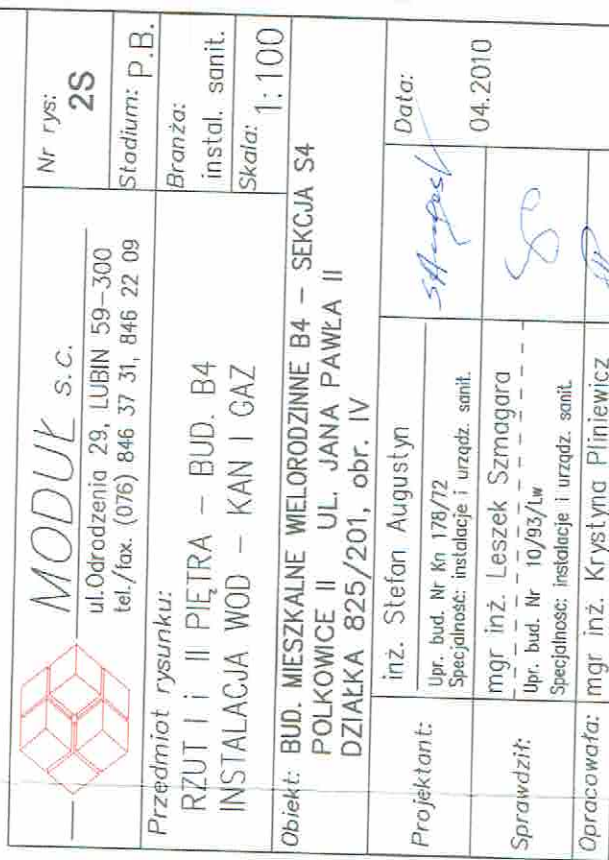 MODUŁ s.c.
ul.Odrodzenia 29, LUBIN 59-300
tel./fax. (076) 846 37 31, 846 22 09
Nr rys:
2S
Stadium: P.B.
Przedmiot rysunku:
RZUT I i II PIĘTRA - BUD. B4
INSTALACJA WOD - KAN I GAZ
Branża:
instal. sanit.
Skala: 1:100
Obiekt: BUD. MIESZKALNE WIELORODZINNE B4 - SEKCJA S4
POLKOWICE II UL. JANA PAWŁA II
DZIAŁKA 825/201, obr. IV
Projektant:
inż. Stefan Augustyn
Upr. bud. Nr Kn 178/72
Specjalność: instalacje i urządz. sanit.
Data:
04.2010
Sprawdził:
mgr inż. Leszek Szmagara
Upr. bud. Nr 10/93/Lw
Specjalność: instalacje i urządz. sanit.
Opracowała: mgr inż. Krystyna Pliniewicz